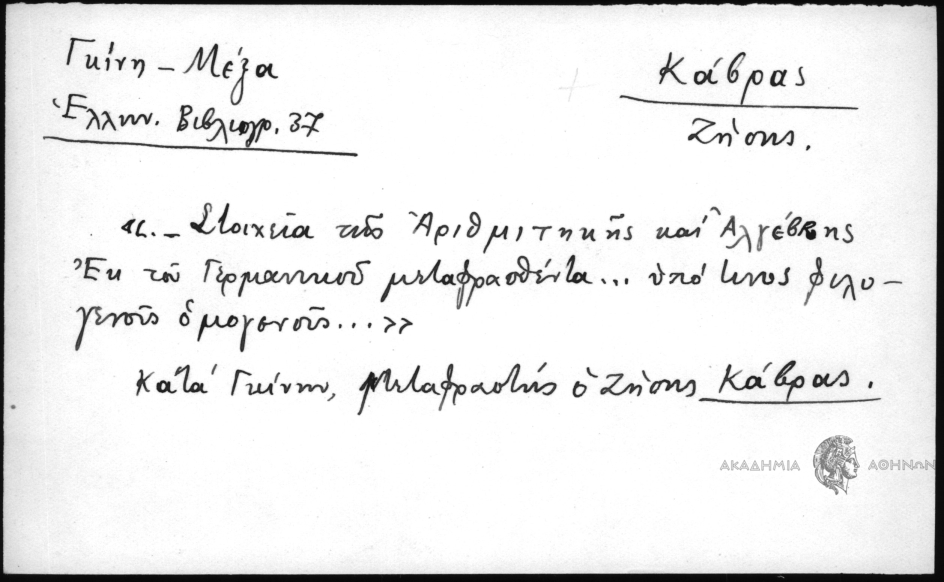 Γκίνη – Μέξα
Ἑλλην. Βιβλιογρ. 37
Κάβρας
Ζήσης.
«.– Στοιχεῖα τῆς Ἀριθμιτηκῆς καί Ἀλγέβρης
Ἐκ τοῦ Γερμανικοῦ μεταφρασθέντα... ὑπό τινος φιλο–
γενοῦς ὁμογενοῦς...»
Κατά Γκίνην, μεταφραστής ὁ Ζήσης Κάβρας.
ΑΚΑΔΗΜΙΑ ΑΘΗΝΩΝ